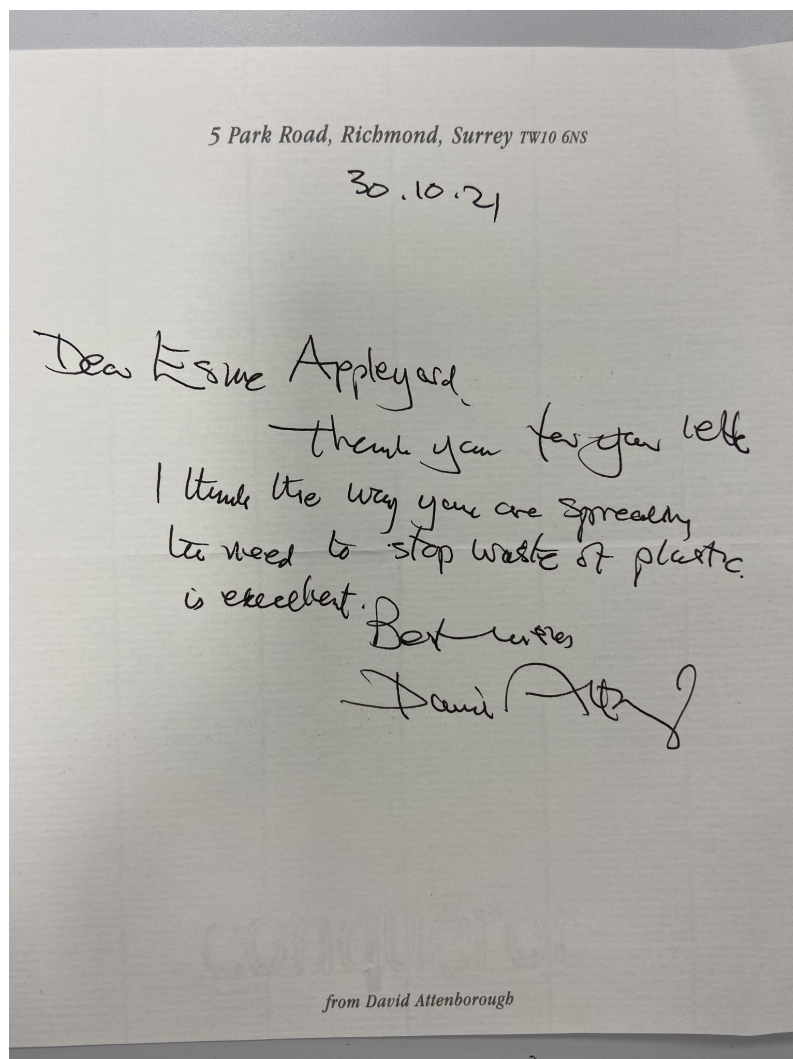 5 Park Road, Richmond, Surrey TW10 6NS
30.10.21
Dear Esme Appleyard,
Thank you for your letter
I think the way you are spreading
the need to stop waste of plastic
is excellent.
Best wishes
David Attenborough
conqueror
from David Attenborough